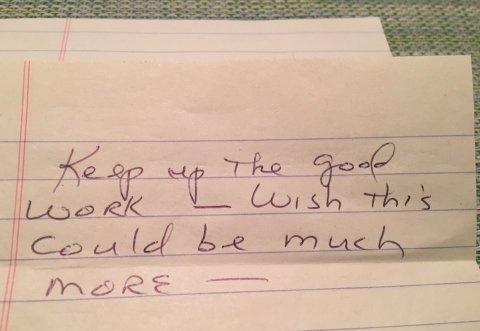 Keep up The good
WORK — Wish this
Could be much
MORE —